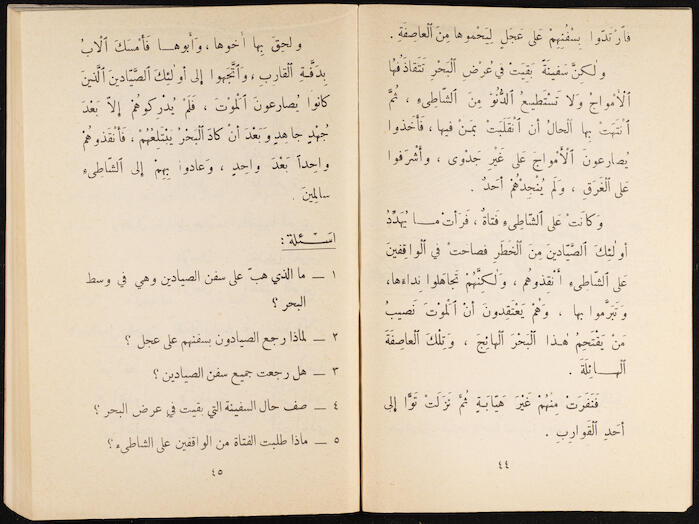 فَارْتَدُّوا بِسُفُنِهِمْ عَلَى عَجَلٍ لِيَحْمُوهَا مِنَ ٱلْعَاصِفَةِ .
وَلٰكِنَّ سَفِينَةً بَقِيَتْ فِي عُرْضِ ٱلْبَحْرِ تَتَقَاذَفُهَا
ٱلْأَمْوَاجُ وَلَا تَسْتَطِيعُ ٱلدُّنُوَّ مِنَ ٱلشَّاطِىءِ ، ثُمَّ
ٱنْتَهَتْ بِهَا ٱلْحَالُ أَنِ ٱنْقَلَبَتْ بِمَنْ فِيهَا ، فَأَخَذُوا
يُصَارِعُونَ ٱلْأَمْوَاجَ عَلَى غَيْرِ جَدْوَى ، وَأَشْرَفُوا
عَلَى ٱلْغَرَقِ ، وَلَمْ يُنْجِدْهُمْ أَحَدٌ .
وَكَانَتْ عَلَى ٱلشَّاطِىءِ فَتَاةٌ ، فَرَأَتْ مَا يُهَدِّدُ
أُولٰئِكَ ٱلصَّيَّادِينَ مِنَ ٱلْخَطَرِ فَصَاحَتْ فِي ٱلْوَاقِفِينَ
عَلَى ٱلشَّاطِىءِ أَنْقِذُوهُمْ ، وَلٰكِنَّهُمْ تَجَاهَلُوا نِدَاءَهَا،
وَتَبَرَّمُوا بِهَا ، وَهُمْ يَعْتَقِدُونَ أَنَّ ٱلْمَوْتَ نَصِيبُ
مَنْ يَقْتَحِمُ هٰذَا ٱلْبَحْرَ ٱلْهَائِجَ ، وَتِلْكَ ٱلْعَاصِفَةَ
ٱلْهَائِلَةَ .
فَنَفَرَتْ مِنْهُمْ غَيْرَ هَيَّابَةٍ ثُمَّ نَزَلَتْ تَوًّا إِلَى
أَحَدِ ٱلْقَوَارِبِ .
٤٤
وَلَحِقَ بِهَا أَخُوهَا ، وَأَبُوهَا فَأَمْسَكَ ٱلْأَبُ
بِدَفَّةِ ٱلْقَارِبِ ، وَٱتَّجَهُوا إِلَى أُولٰئِكَ ٱلصَّيَّادِينَ ٱلَّذِينَ
كَانُوا يُصَارِعُونَ ٱلْمَوْتَ ، فَلَمْ يُدْرِكُوهُمْ إِلَّا بَعْدَ
جُهْدٍ جَاهِدٍ وَبَعْدَ أَنْ كَادَ ٱلْبَحْرُ يَبْتَلِعُهُمْ ، فَأَنْقَذُوهُمْ
وَاحِدًا بَعْدَ وَاحِدٍ ، وَعَادُوا بِهِمْ إِلَى ٱلشَّاطِىءِ
سَالِمِينَ .
اسئلة :
١ — ما الذي هبّ على سفن الصيادين وهي في وسط
البحر ؟
٢ — لماذا رجع الصيادون بسفنهم على عجل ؟
٣ — هل رجعت جميع سفن الصيادين ؟
٤ — صف حال السفينة التي بقيت في عرض البحر ؟
٥ — ماذا طلبت الفتاة من الواقفين على الشاطىء ؟
٤٥